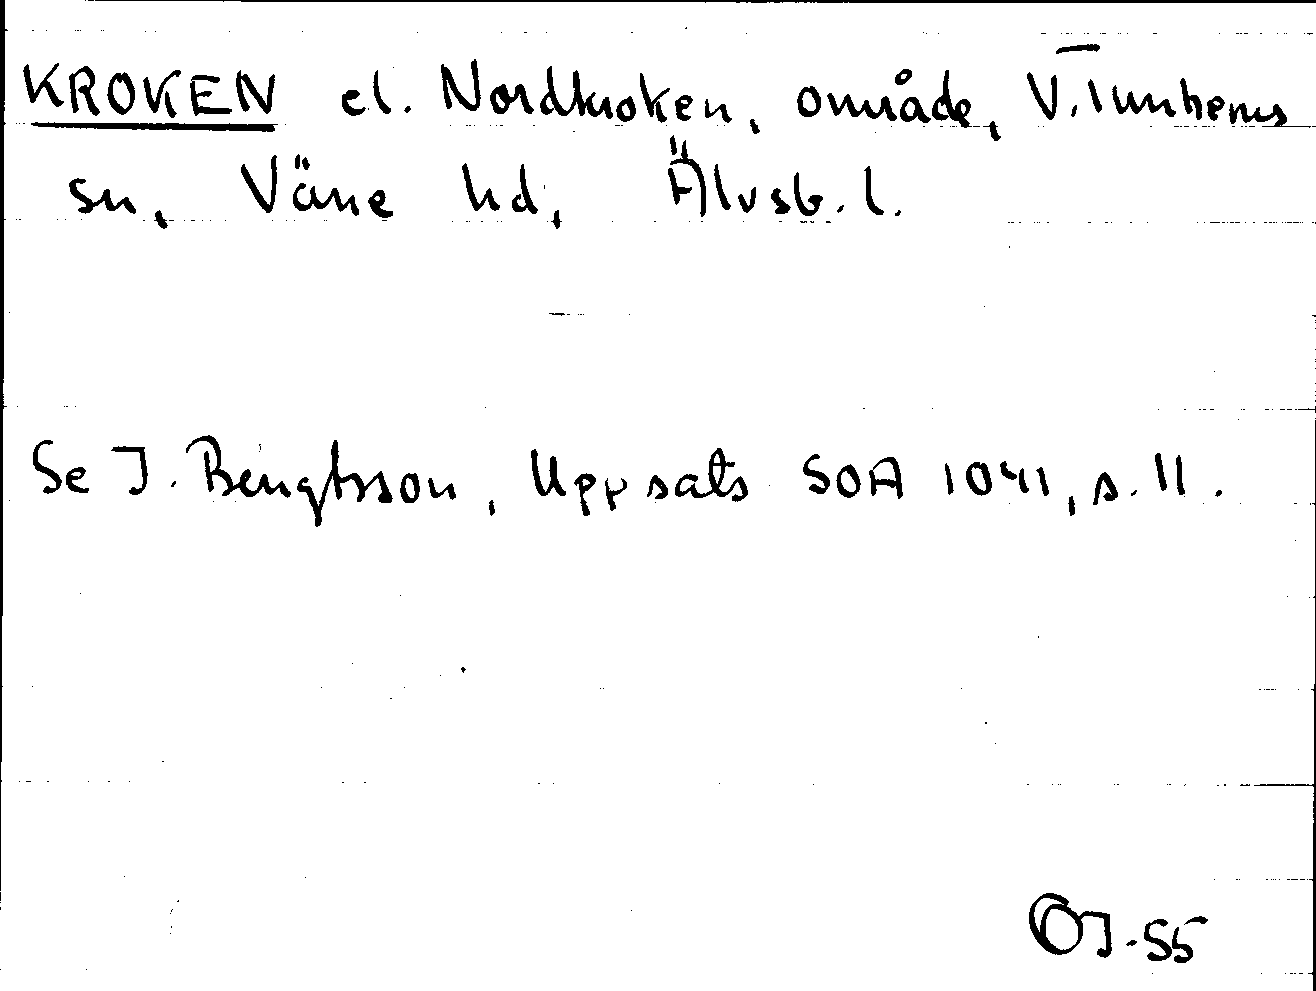 KROKEN el. Nordkroken, område, V. Tunhems
sn, Väne hd, Älvsb. l.
Se J. Bengtsson, Uppsats SOA 1041, s. 11.
OJ-55